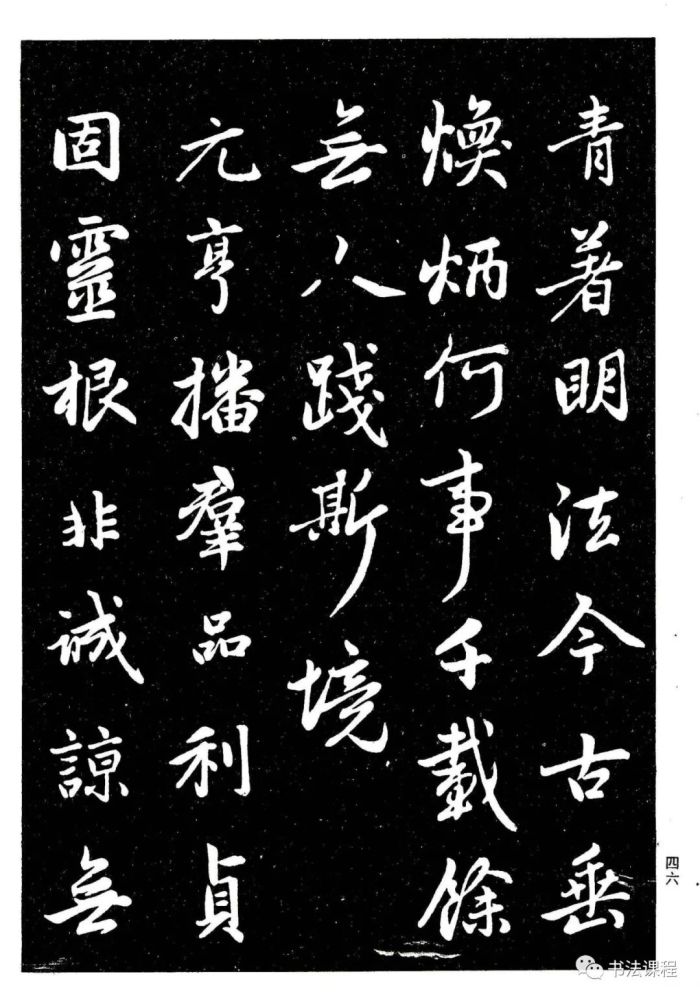 青著明法今古垂
煥炳何事千載餘
無人踐斯境
元亨播羣品利貞
固靈根非誠諒無
四六
书法课程